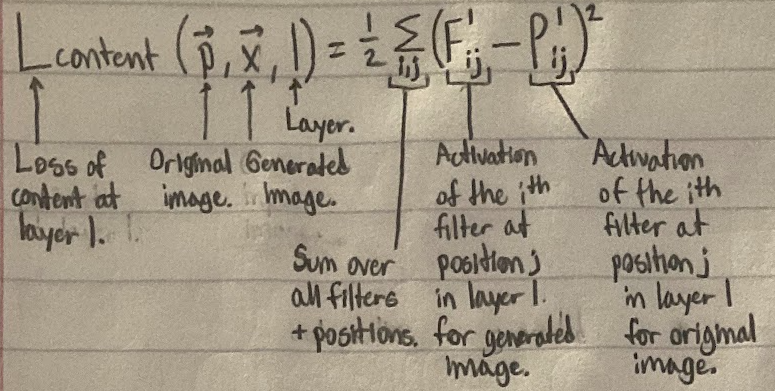 L content (p⃗, x⃗, l) = 1/2 Σ i,j (F^l ij − P^l ij)²
Layer.
Loss of
content at
layer l.
Original
image.
Generated
Image.
Sum over
all filters
+ positions.
Activation
of the ith
filter at
position j
in layer l.
for generated
image.
Activation
of the ith
filter at
position j
in layer l
for original
image.